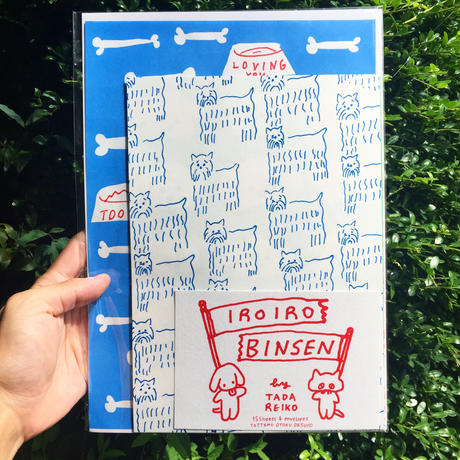 LOVING
YOU
TOO
IROIRO
BINSEN
by
TADA
REIKO
15 sheets & envelopes
TOTTEMO OTOKU DESUYO